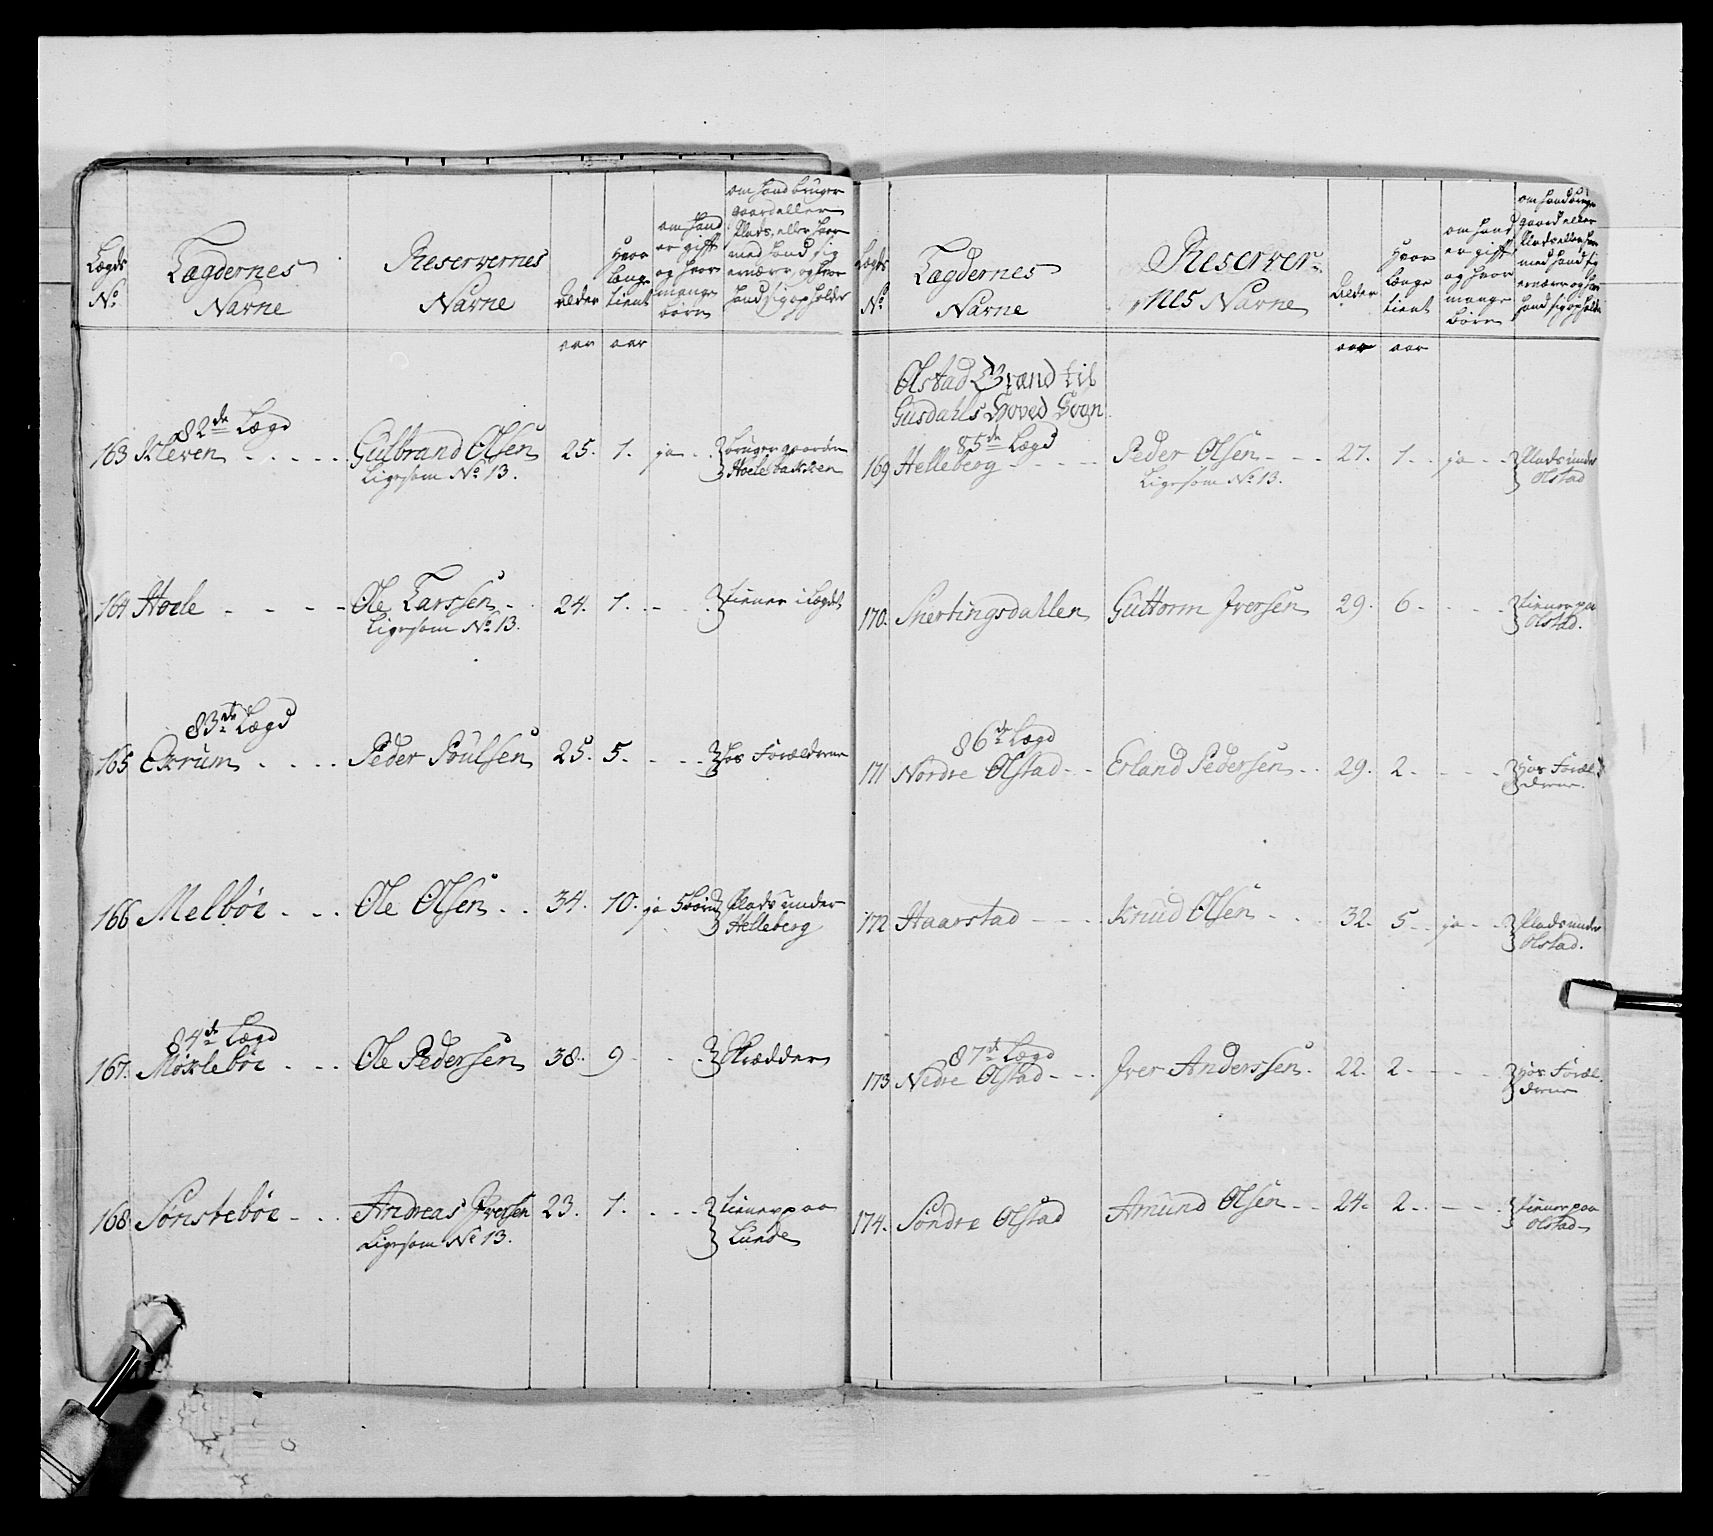 Lægds No.
Lægdernes Navne
Reservernes Navne
Alder
Hvor Længe tient
om hand er gift og hvor mange børn
om hand bruger gaard eller Plads, eller hvor med hand sig ernærer, og hvor hand sig opholder
aar aar
82de Lægd
163 Kleven - - - - - Gulbrand Olsen 25. 1. ja - - bruger gaarden
Ligesom No 13. Hoelebakken
164 Hoele - - - - Ole Larssen - 24. 1. - - - tiener i Lægdet
Ligesom No 13.
83de Lægd
165 Exrum - - - - Peder Poulsen 25. 5. - - - - hos Forældrene
166 Melbøe - - - Ole Olsen - - 34. 10. ja 5 børn Plads under
Helleberg
84de Lægd
167. Møxlebøe - - - Ole Pedersen 38. 9 - - - Skrædder
168. Sønstebøe - - - Andreas Iversen 23. 1. - - - - tiener paa
Ligesom No 13. Lunde
Lægds No
Lægdernes Navne
Reservernes Navne
Alder
Hvor Længe tient
om hand er gift og hvor mange Børn
om hand bruger gaard eller Plads eller hvor med hand sig ernærer og hvor hand sig opholder
aar aar
Olstad Grænd til
Gusdahls Hoved Sogn
85de Lægd
169 Helleberg - - - - Peder Olsen - - - 27. 1 - - ja - - Plads under
Ligesom No 13. Olstad
170. Snertingsdahlen Guttorm Iversen 29. 6 - - - - tiener paa
Olstad.
86de Lægd
171 Nordre Olstad - - Erland Pedersen - - 29. 2 - - - - hos Foræl-
drene.
172 Haarstad - - - - Knud Olsen - - - 32. 5 - - ja - - Plads under
Olstad.
87de Lægd
173 Nedre Olstad - - - Iver Anderssen - 22. 2 - - - - hos Foræl-
drene
174. Søndre Olstad Amund Olsen - - 24. 2 - - - - tiener paa
Olstad -